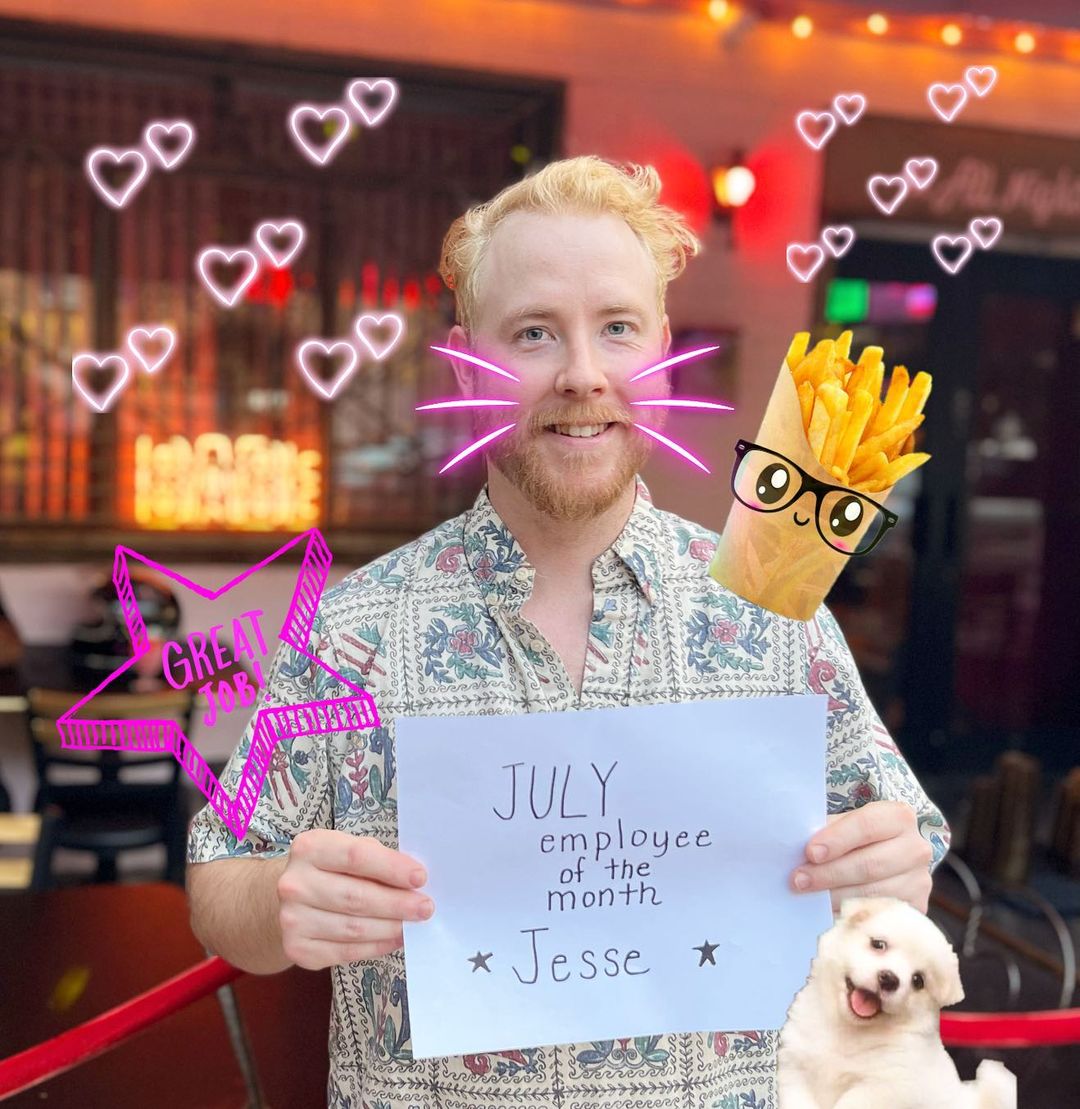 GREAT
JOB!
JULY
employee
of the
month
★ Jesse ★